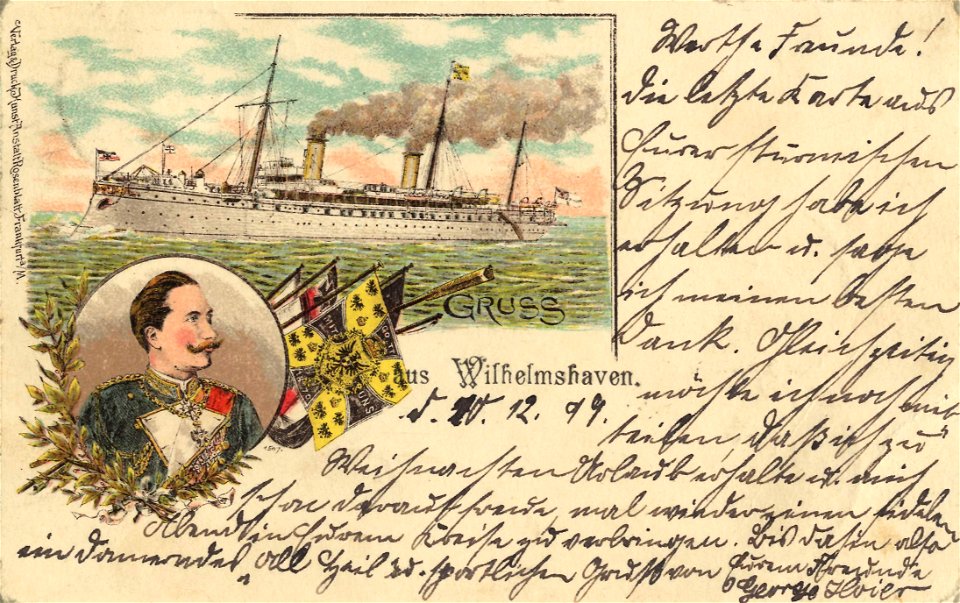 Verlag & Druck Kunst Anstalt Rosenblatt, Frankfurt a/M.
GRUSS
aus Wilhelmshaven.
MIT
GOTT
UNS
d. 10. 12. 99.
Werthe Freunde!
die letzte Karte aus
Eurer stürmischen
Sitzung habe ich
erhalten u. sage
ich meinen besten
Dank. Gleichzeitig
möchte ich noch mit
teilen, daß ich zu
Weihnachten Urlaub erhalte u. mich
schon darauf freue, mal wieder einen fidelen
Abend in Eurem Kreise zu verbringen. Bis dahin also
ein donnerndes All Heil u. sportlichen Gruss von Eurem Freunde
George